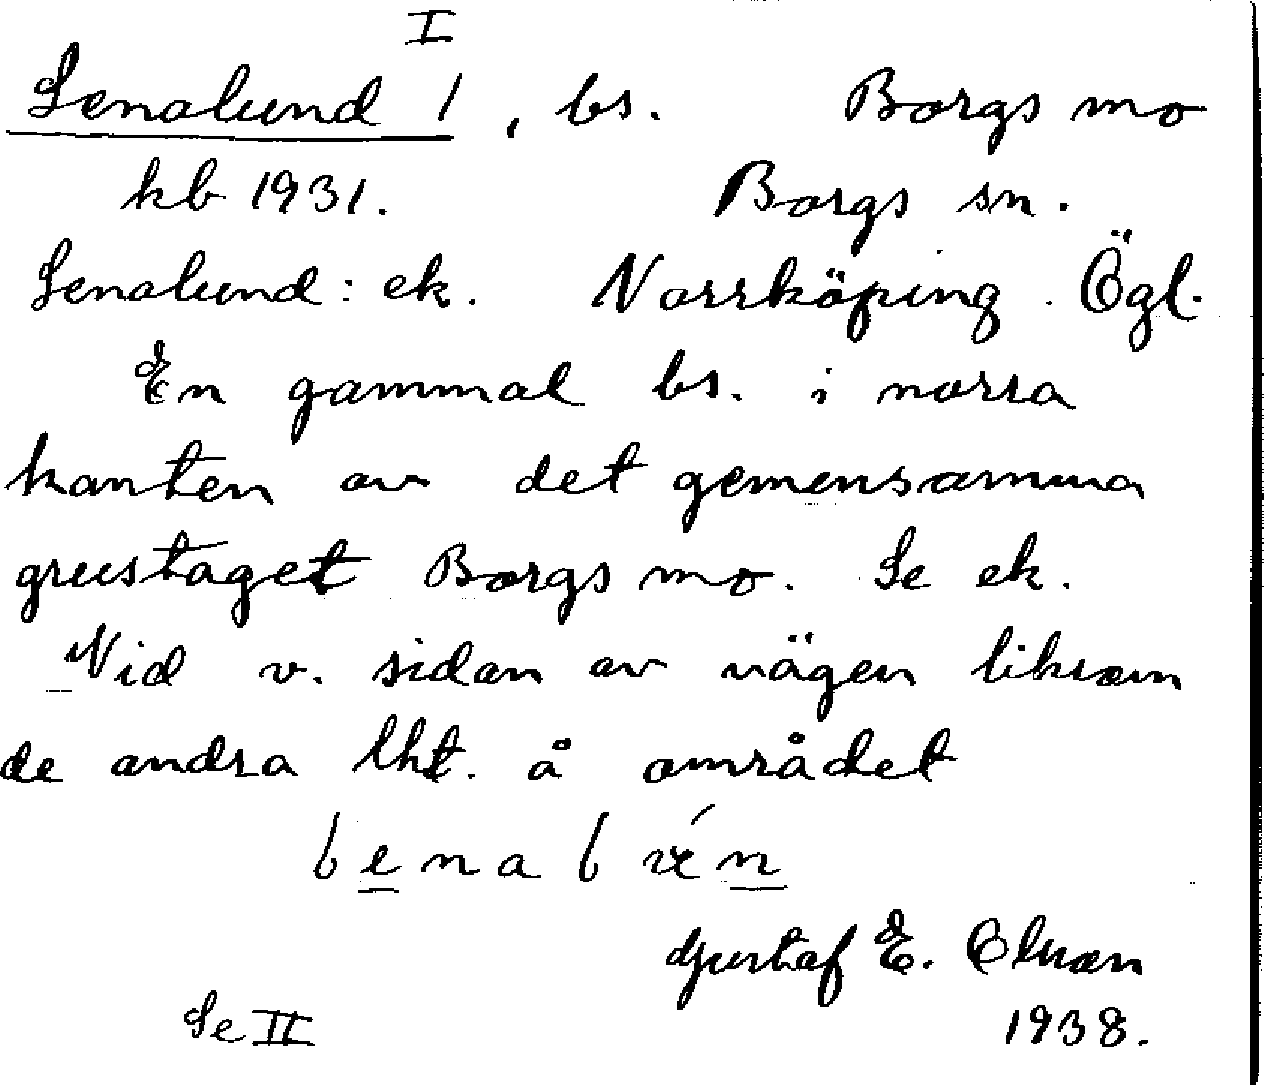 I
Lenalund 1, bs. Borgs mo
kb 1931. Borgs sn.
Lenalund: ek. Norrköping. Ögl.
En gammal bs. i norra
kanten av det gemensamma
grustaget Borgs mo. Se ek.
Vid v. sidan av vägen liksom
de andra lht. å området
l e n a l n
Gustaf E. Olsson
Se II 1938.